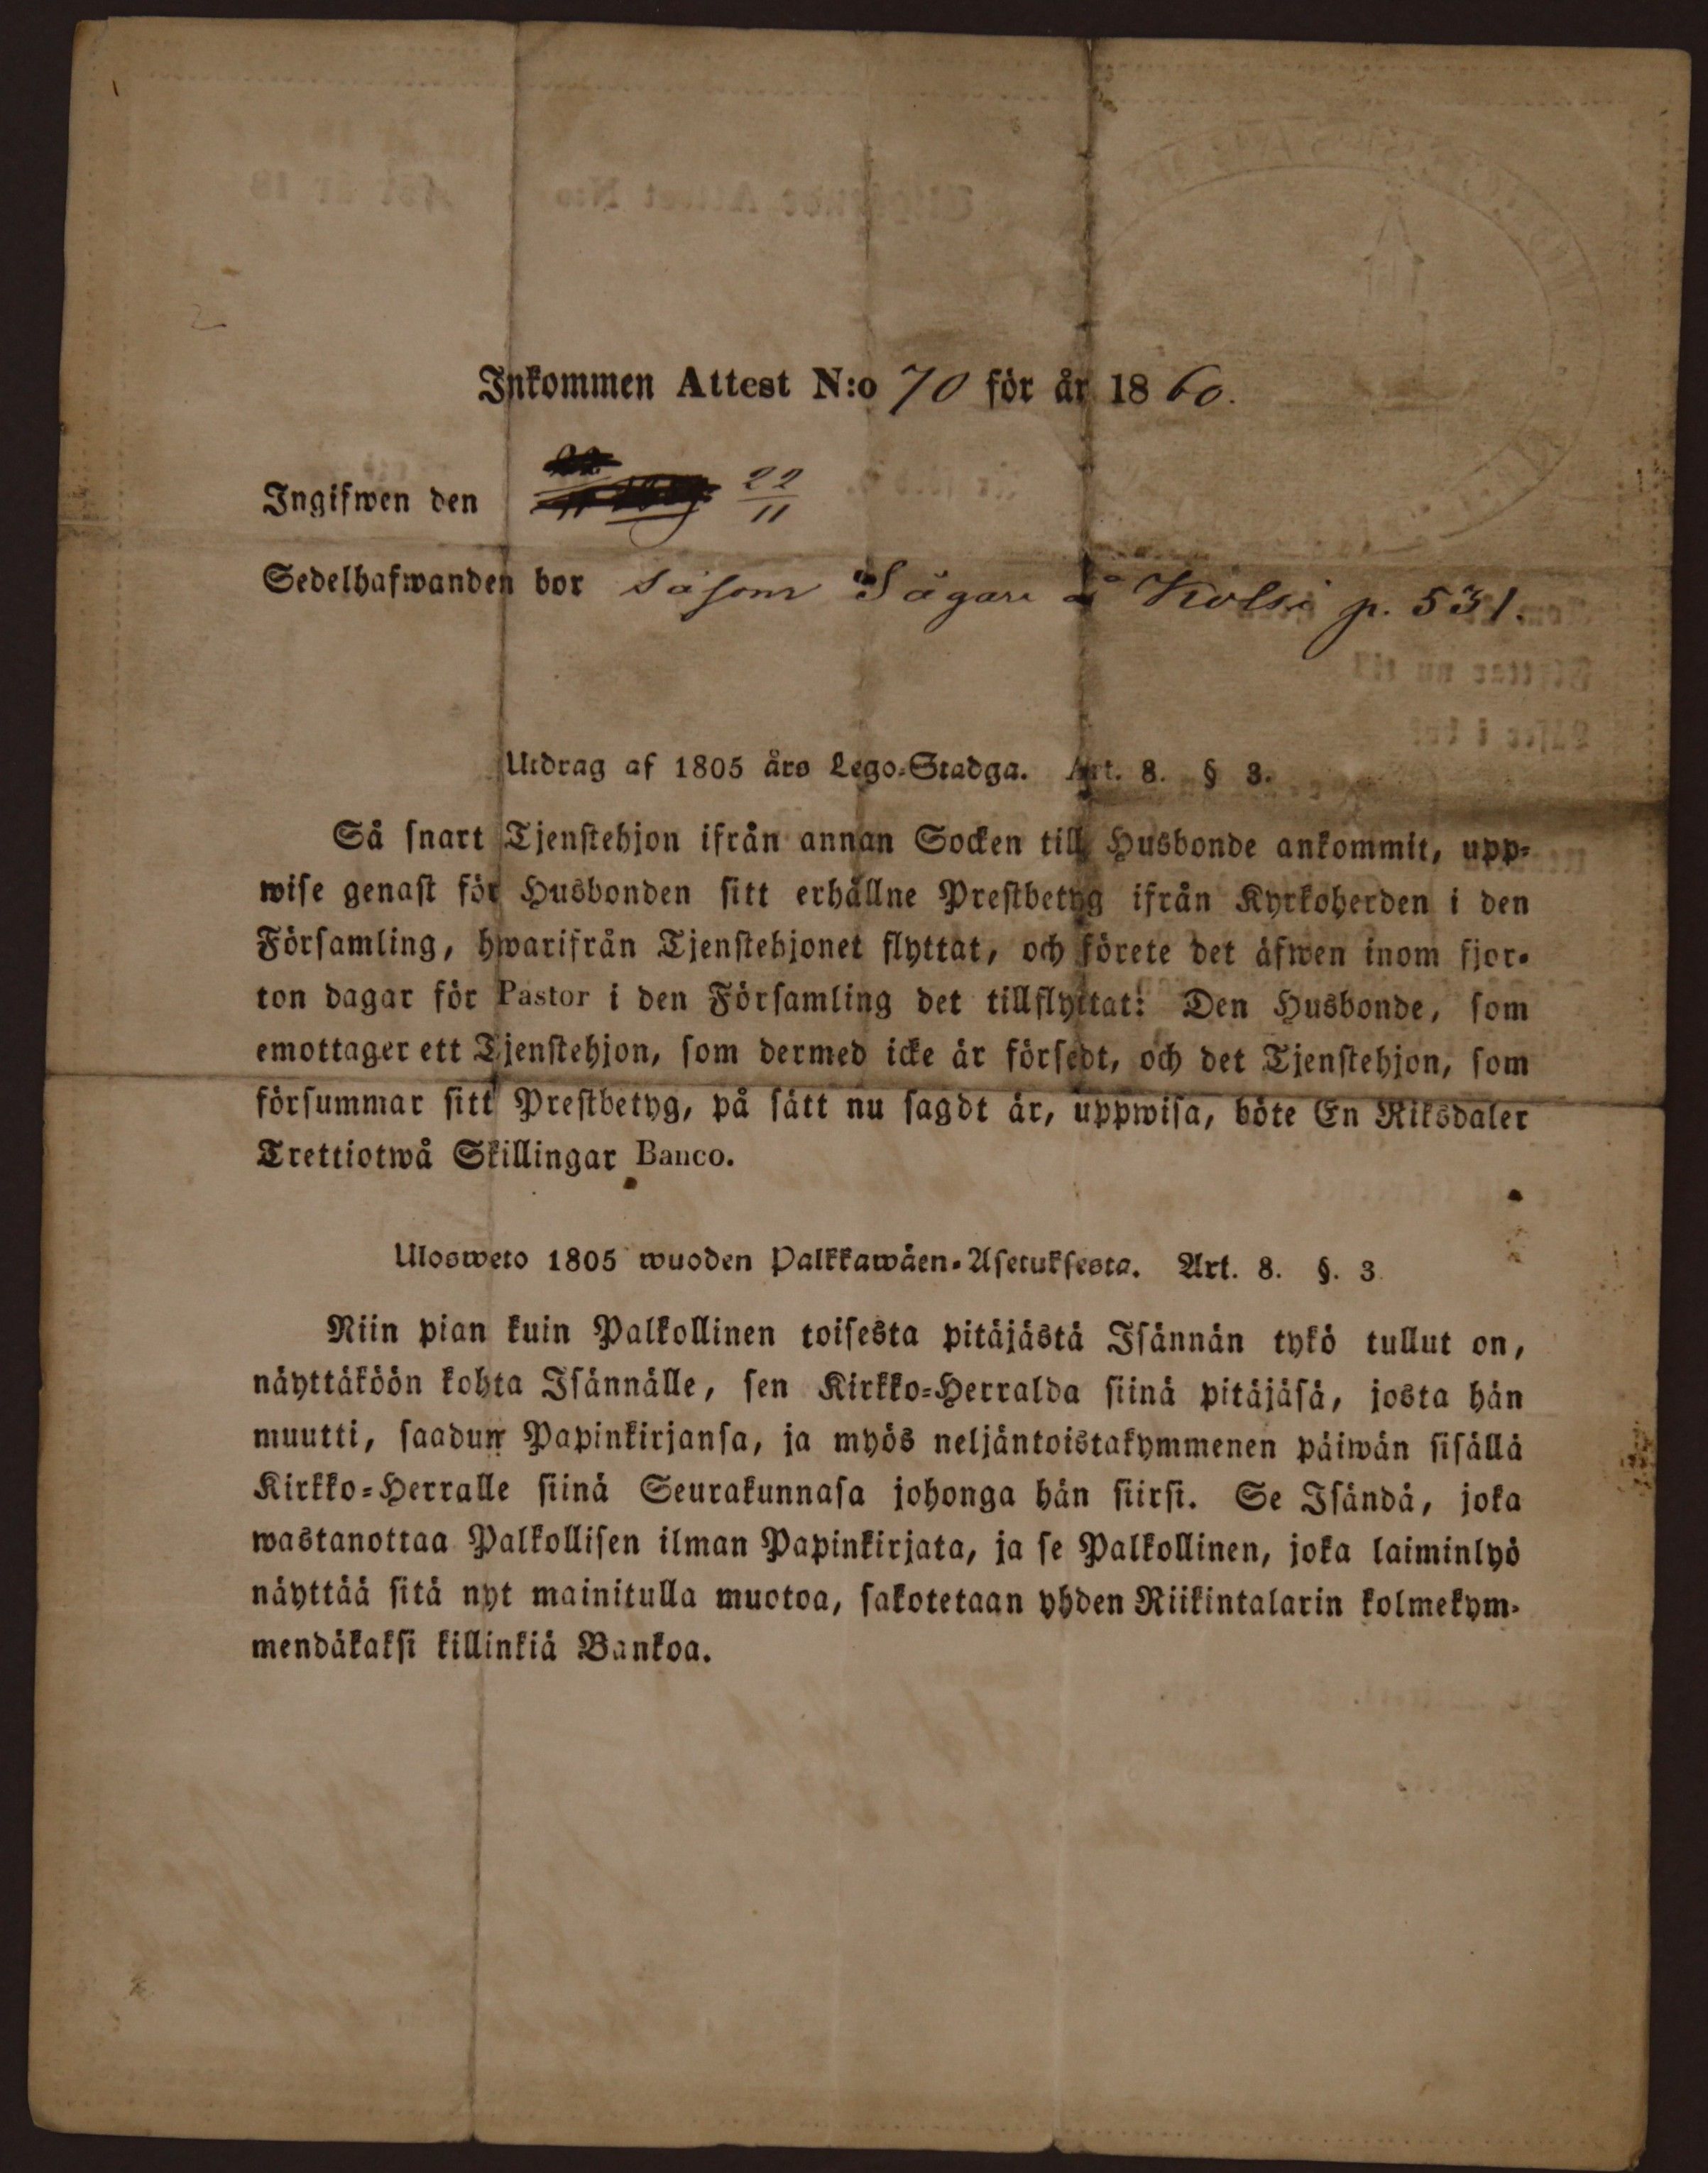 Inkommen Attest N:o 70 för år 1860.
Ingifwen den 22/11
Sedelhafwanden bor såsom Sågare å Kolsi p. 531.
Utdrag af 1805 års Lego-Stadga. Art. 8. § 3.
Så snart Tjenstehjon ifrån annan Socken till Husbonde ankommit, upp-
wise genast för Husbonden sitt erhållne Prestbetyg ifrån Kyrkoherden i den
Församling, hwarifrån Tjenstehjonet flyttat, och förete det äfwen inom fjor-
ton dagar för Pastor i den Församling det tillflyttat: Den Husbonde, som
emottager ett Tjenstehjon, som dermed icke är försedt, och det Tjenstehjon, som
försummar sitt Prestbetyg, på sätt nu sagdt är, uppwisa, böte En Riksdaler
Trettiotwå Skillingar Banco.
Ulosweto 1805 wuoden Palkkawäen-Asetuksesta. Art. 8. §. 3
Niin pian kuin Palkollinen toisesta pitäjästä Isännän tykö tullut on,
näyttäköön kohta Isännälle, sen Kirkko-Herralda siinä pitäjäsä, josta hän
muutti, saadun Papinkirjansa, ja myös neljäntoistakymmenen päiwän sisällä
Kirkko-Herralle siinä Seurakunnasa johonga hän siirsi. Se Isändä, joka
wastanottaa Palkollisen ilman Papinkirjata, ja se Palkollinen, joka laiminlyö
näyttää sitä nyt mainitulla muotoa, sakotetaan yhden Riikintalarin kolmekym-
mendäkaksi killinkiä Bankoa.